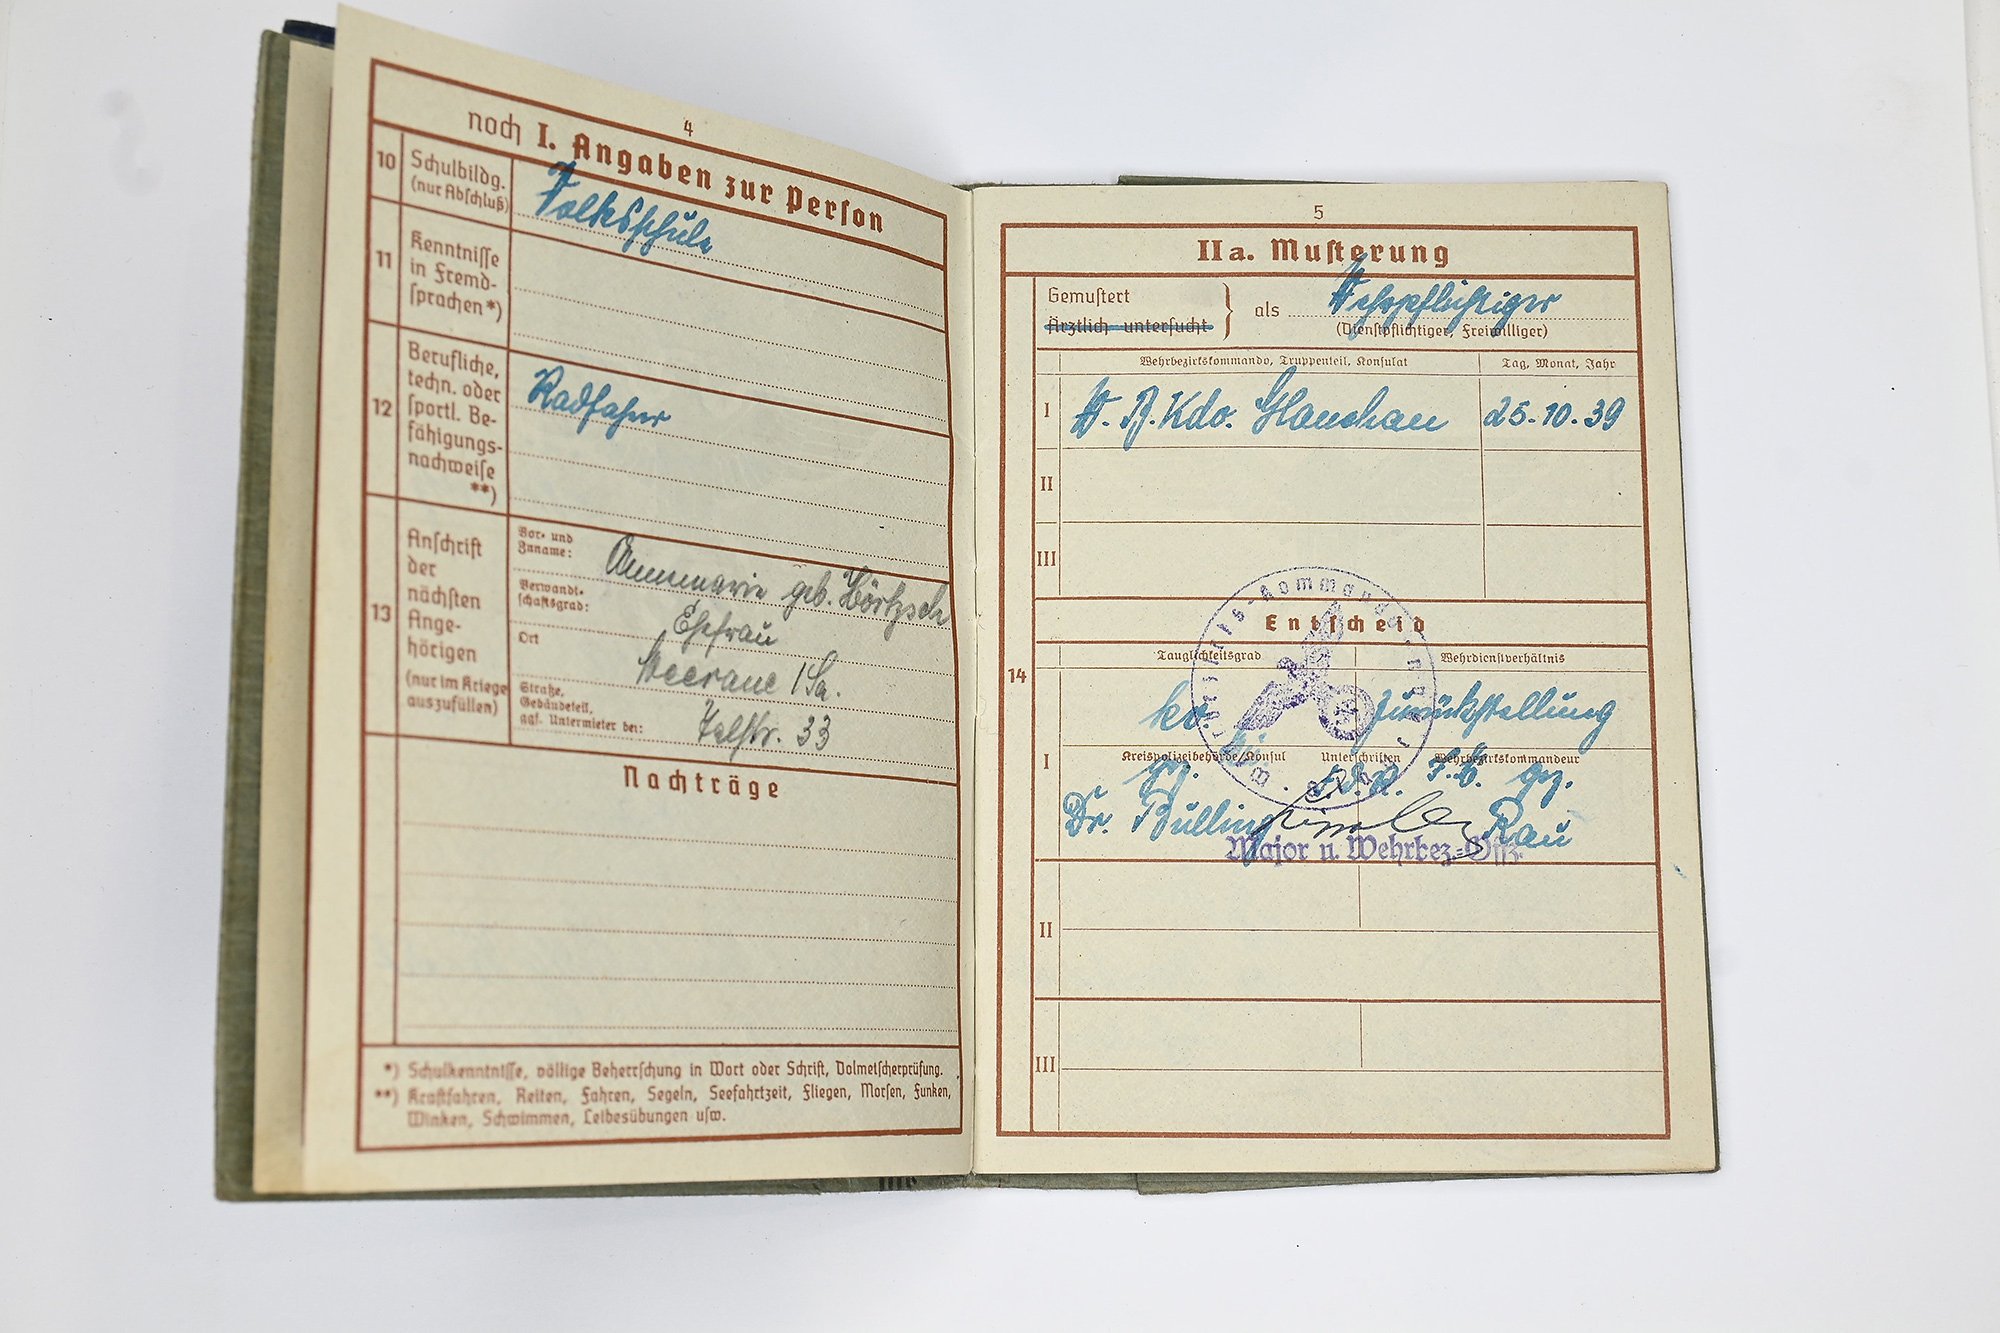 4
noch I. Angaben zur Person
10 Schulbildg. (nur Abschluß) Volksschule
11 Kenntnisse in Fremd-sprachen *)
12 Berufliche, techn. oder sportl. Be-fähigungs-nachweise **) Radfahrer
13 Anschrift der nächsten Ange-hörigen (nur im Kriege auszufüllen)
Vor- und Zuname: Annemarie geb. Hörtzsch
Verwandt-schaftsgrad: Ehefrau
Ort Meerane i/Sa.
Straße, Gebäudeteil, ggf. Untermieter bei: Talstr. 33
Nachträge
*) Schulkenntnisse, völlige Beherrschung in Wort oder Schrift, Dolmetscherprüfung.
**) Kraftfahren, Reiten, Fahren, Segeln, Seefahrtzeit, Fliegen, Morsen, Funken,
Winken, Schwimmen, Leibesübungen usw.
5
IIa. Musterung
Gemustert
Ärztlich untersucht
als Wehrpflichtiger
(Dienstpflichtiger, Freiwilliger)
Wehrbezirkskommando, Truppenteil, Konsulat Tag, Monat, Jahr
I W. B. Kdo. Glauchau 25.10.39
II
III
Entscheid
14
Tauglichkeitsgrad Wehrdienstverhältnis
kv. Zurückstellung
I Kreispolizeibehörde/Konsul Unterschriften Wehrbezirkskommandeur
gez. gez.
Dr. Bülling Rau
Major u. Wehrbez.=Offz.
II
III